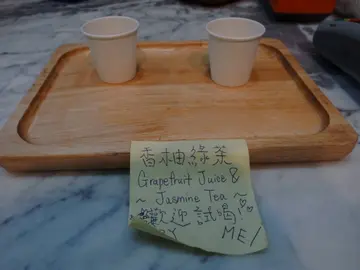 香柚綠茶
Grapefruit Juice &
~ Jasmine Tea ~
歡迎試喝!
ME!